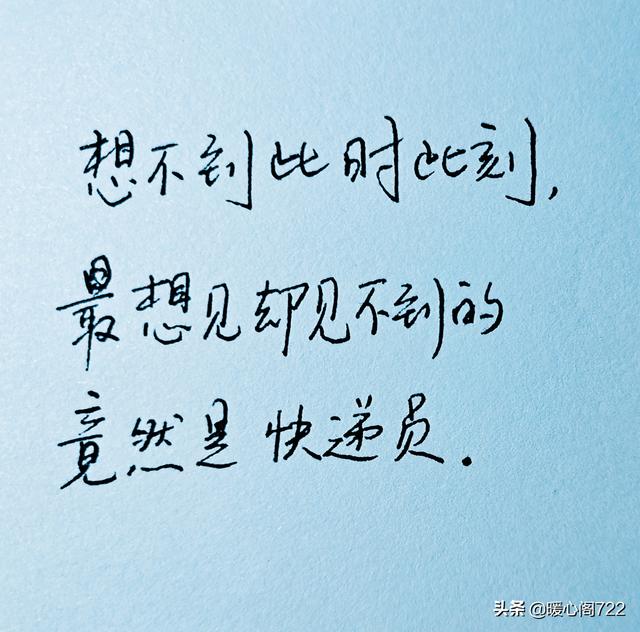 想不到此时此刻,
最想见却见不到的
竟然是快递员.
头条 @暖心阁722